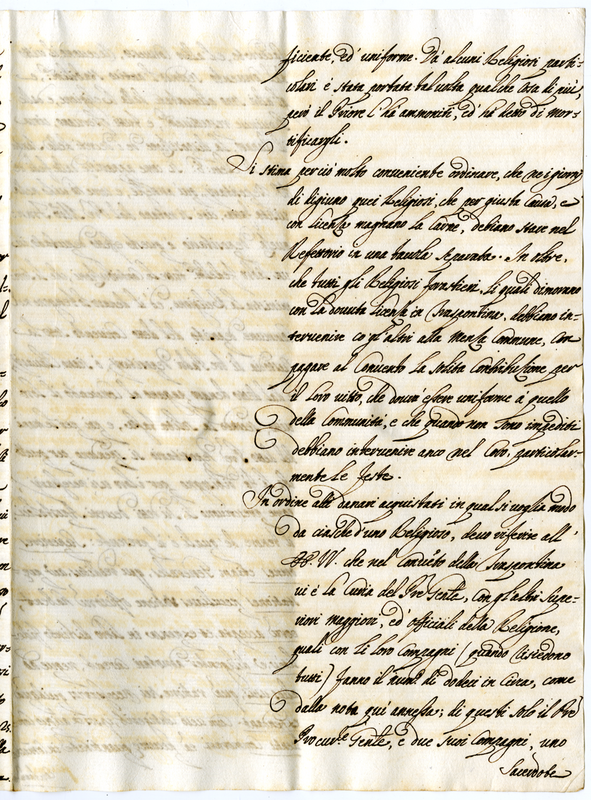 ficiente, ed' uniforme. Da alcuni Religiosi parti-
colari è stata portata tal volta qualche cosa di più,
però il Priore l' hà ammoniti, ed' hà detto di mor-
tificargli.
Si stima perciò molto conveniente ordinare, che ne i giorni
di digiuno quei Religiosi, che per giusta Causa, e
con licenza magnano la Carne, debiano stare nel
Refettorio in una tavola separata. In oltre,
che tutti gli Religiosi forastieri, li quali dimorano
con la dovuta licenza in Traspontina, debbiano in-
tervenire co gl' altri alla mensa Commune, con
pagare al Convento la solita Contributione per
il loro vitto, che dourà essere uniforme à quello
della Communità, e che quando non sono impediti
debbiano intervenire anco nel Coro, particolar-
mente le feste.
In ordine alli danari acquistati in qual si voglia modo
da ciasched'uno Religioso, devo riferire all'
VV. che nel Convento della Traspontina
vi è la Curia del Pre Genle, con gl' altri Supe-
riori maggiori, ed' officiali della Religione,
quali con li loro Compagni (quando risiedono
tutti) fanno il num.o di dodeci in Circa, come
dalla nota qui annessa; di questi solo il Pre
Procur.e Genle, e due suoi Compagni, uno
Sacerdote